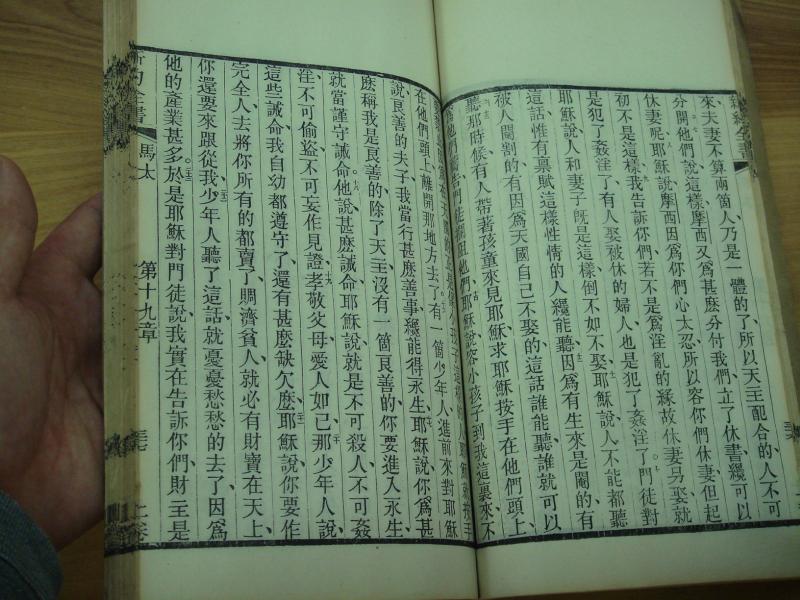 來、夫妻不算兩箇人、乃是一體的了、所以天主配合的、人不可
分開、他們說、這樣摩西又爲甚麽分付我們、立了休書、纔可以
休妻呢、耶穌說、摩西因爲你們心太忍、所以容你們休妻、但起
初不是這樣、我告訴你們、若不是爲淫亂的緣故、休妻另娶、就
是犯了姦淫了、有人娶被休的婦人、也是犯了姦淫了、門徒對
耶穌說、人和妻子旣是這樣、倒不如不娶、耶穌說、人不能都聽
這話、惟有禀賦這樣性情的人、纔能聽、因爲有生來是閹的、有
被人閹割的、有因爲天國自己不娶的、這話誰能聽、誰就可以
聽、那時候有人帶著孩童來見耶穌、求耶穌按手在他們頭上
耶穌說、容小孩子到我這裏來、不
在他們頭上、離開那地方去了、有一箇少年人進前來、對耶穌
說、良善的夫子、我當行甚麽善事、纔能得永生、耶穌說、你爲甚
麽稱我是良善的、除了天主、沒有一箇良善的、你要進入永生、
就當謹守誡命、他說、甚麽誡命、耶穌說、就是不可殺人、不可姦
淫、不可偷盜、不可妄作見證、孝敬父母、愛人如己、那少年人說、
這些誡命我自幼都遵守了、還有甚麽缺欠麽、耶穌說、你要作
完全人、去將你所有的都賣了、賙濟貧人、就必有財寶在天上、
你還要來跟從我、少年人聽了這話、就憂憂愁愁的去了、因爲
他的產業甚多、於是耶穌對門徒說、我實在告訴你們、財主是
馬太 第十九章 上卷